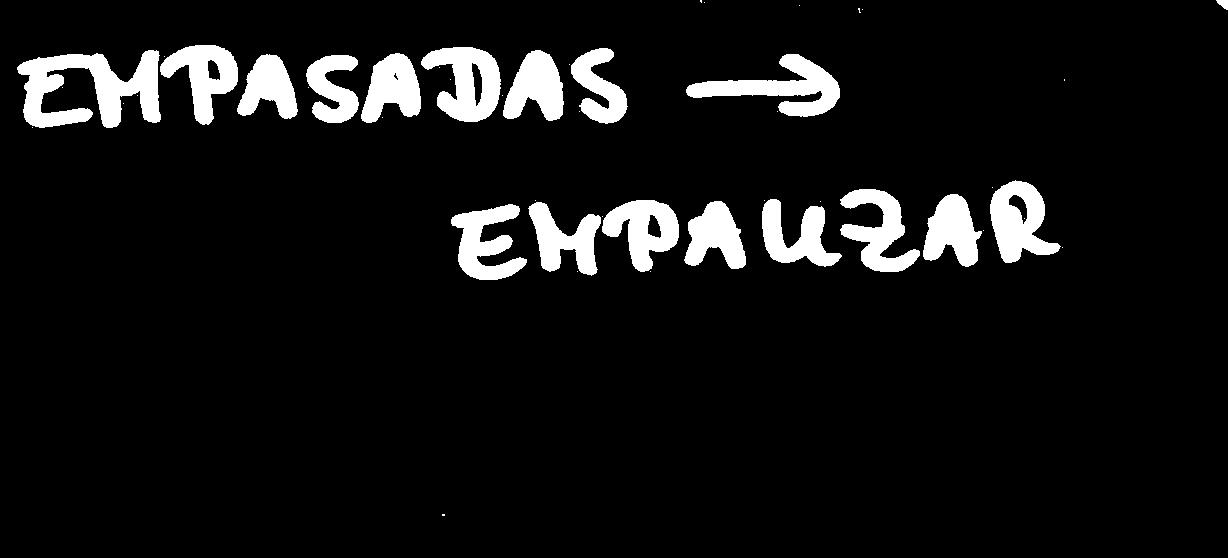 EMPASADAS →
EMPAUZAR